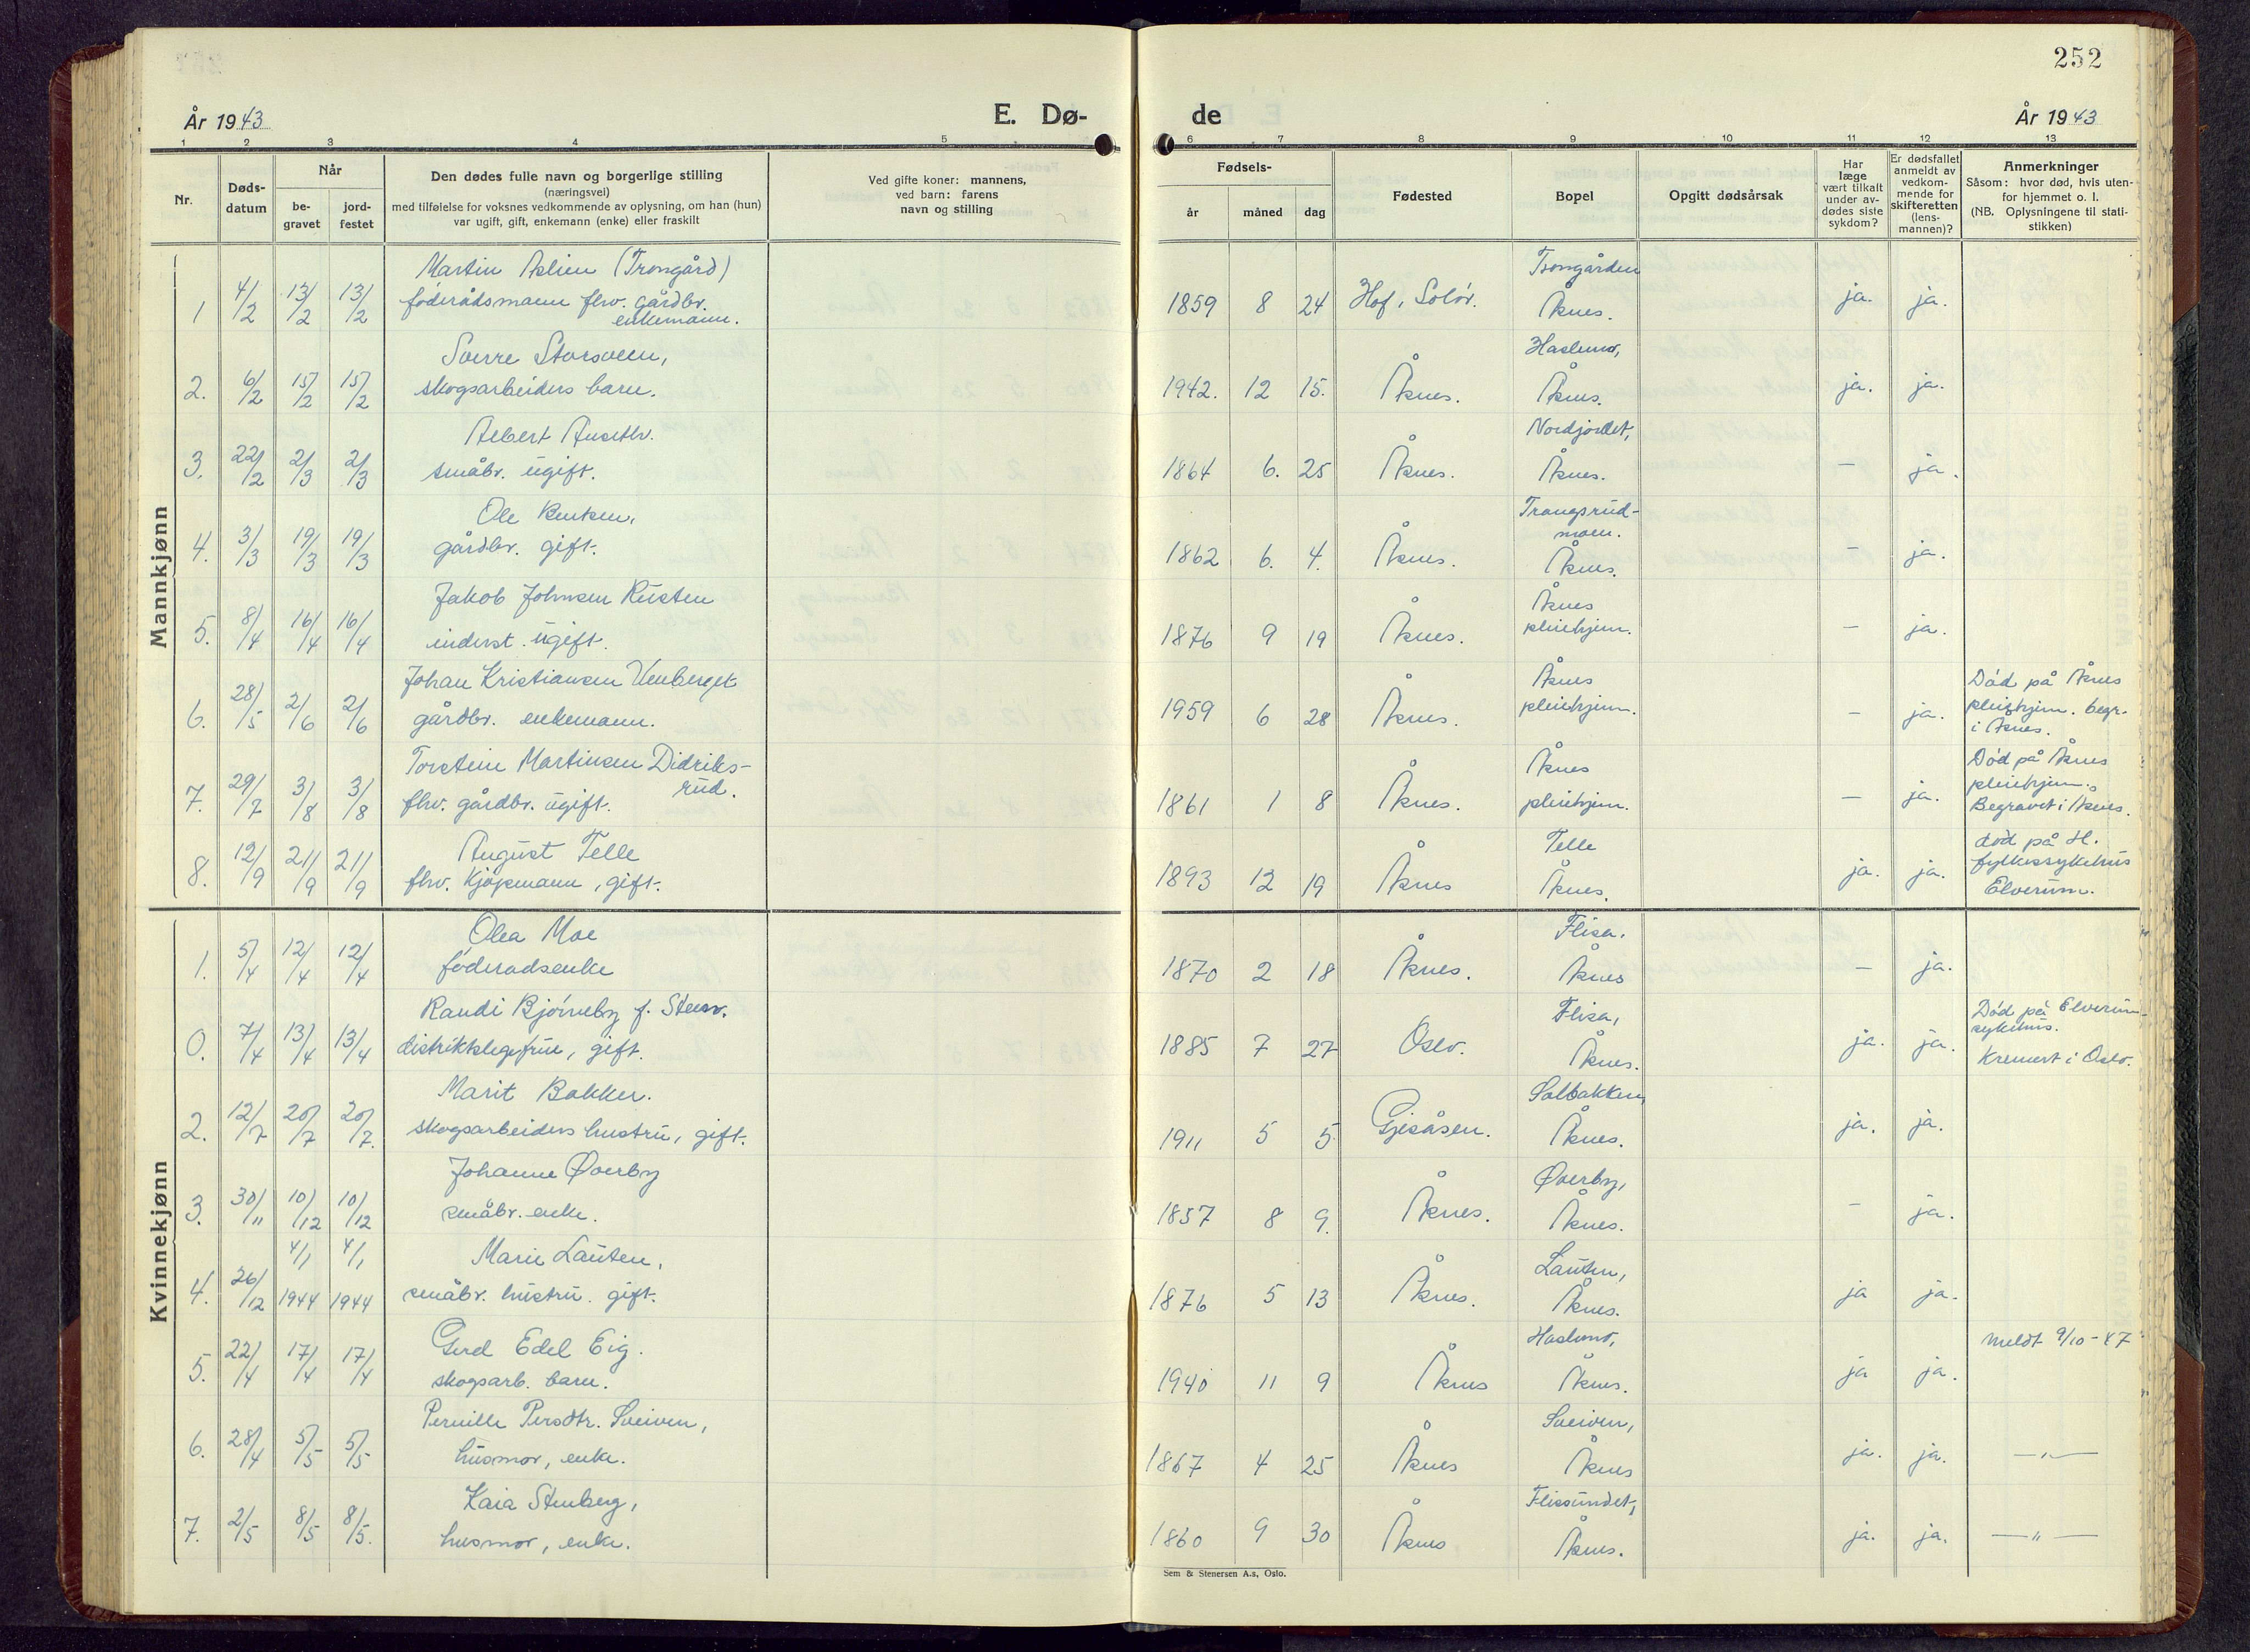 252
År 1943
E. Dø-
de
År 1943
1 2 3 4 5 6 7 8 9 10 11 12 13
Nr.
Døds-
datum
Når
be-
gravet
jord-
festet
Den dødes fulle navn og borgerlige stilling
(næringsvei)
med tilføielse for voksnes vedkommende av oplysning, om han (hun)
var ugift, gift, enkemann (enke) eller fraskilt
Ved gifte koner: mannens,
ved barn: farens
navn og stilling
Fødsels-
år
måned
dag
Fødested
Bopel
Opgitt dødsårsak
Har
læge
vært tilkalt
under av-
dødes siste
sykdom?
Er dødsfallet
anmeldt av
vedkom-
mende for
skifteretten
(lens-
mannen)?
Anmerkninger
Såsom: hvor død, hvis uten-
for hjemmet o. l.
(NB. Oplysningene til stati-
stikken)
Mannkjønn
Martin Aslien (Trongård) Trongården
1 4/2 13/2 13/2 føderådsmann fhv. gårdbr. 1859 8 24 Hof, Solør. Åsnes. ja. ja.
enkemann.
Sverre Storsveen, Haslund,
2. 6/2 15/2 15/2 skogsarbeiders barn. 1942. 12 15. Åsnes. Åsnes. ja. ja.
Albert Nordjordet,
3. 22/2 2/3 2/3 småbr. ugift. 1864 6. 25 Åsnes. Åsnes. — ja.
Ole Berntsen, Trangsrud-
moen.
4. 3/3 19/3 19/3 gårdbr. gift. 1862 6. 4. Åsnes. Åsnes. — ja.
Jakob Johnsen Rusten Åsnes
5. 8/4 16/4 16/4 inderst. ugift. 1876 9 19 Åsnes. pleiehjem. — ja.
Johan Kristiansen Venberget Åsnes Död på Åsnes
6. 28/5 2/6 2/6 gårdbr. enkemann. 1959 6 28 Åsnes. pleiehjem. — ja. pleiehjem. begr.
i Åsnes.
Torstein Martinsen Didriks- Åsnes Död på Åsnes
rud. pleiehjem.
7. 29/7 3/8 3/8 fhv. gårdbr. ugift. 1861 1 8 Åsnes. pleiehjem. — ja. Begravet i Åsnes.
August Telle Telle död på H.
8. 12/9 21/9 21/9 fhv. kjöpmann, gift. 1893 12 19 Åsnes Åsnes. ja. ja. fylkessykehus
Elverum.
Kvinnekjønn
Olea Moe Flisa.
1. 5/4 12/4 12/4 föderadsenke 1870 2 18 Åsnes. Åsnes — ja.
Randi Bjørneby f. Steen. Flisa, Död på Elverum
sykehus.
0. 7/4 13/4 13/4 distriktslegefrue, gift. 1885 7 27 Oslo. Åsnes. ja. ja. Kremert i Oslo.
Marit Bakken. Solbakken,
2. 12/7 20/7 20/7. skogsarbeiders hustru, gift. 1911 5 5 Gjesåsen. Åsnes. ja. ja.
Johanne Øverby Øverby,
3. 30/11 10/12 10/12 småbr. enke. 1857 8 9. Åsnes. Åsnes. – ja.
4/1 4/1 Marie Lauten, Lauten,
4. 26/12 1944 1944 småbr. hustru. gift. 1876 5 13 Åsnes. Åsnes. ja ja.
Gerd Edel Eig. Haslund, meldt 9/10-47
5. 22/4 17/4 17/4 skogsarb. barn. 1940 11 9 Åsnes Åsnes. ja ja.
Pernille Persdtr. Sveiven, Sveiven,
6. 28/4 5/5 5/5 husmor, enke. 1867 4 25 Åsnes Åsnes ja. ja. —"—
Kaia Stenberg, Flisundet,
7. 2/5 8/5 8/5. husmor, enke. 1860 9 30 Åsnes Åsnes. ja. ja. —"—
Sem & Stenersen A.s, Oslo.